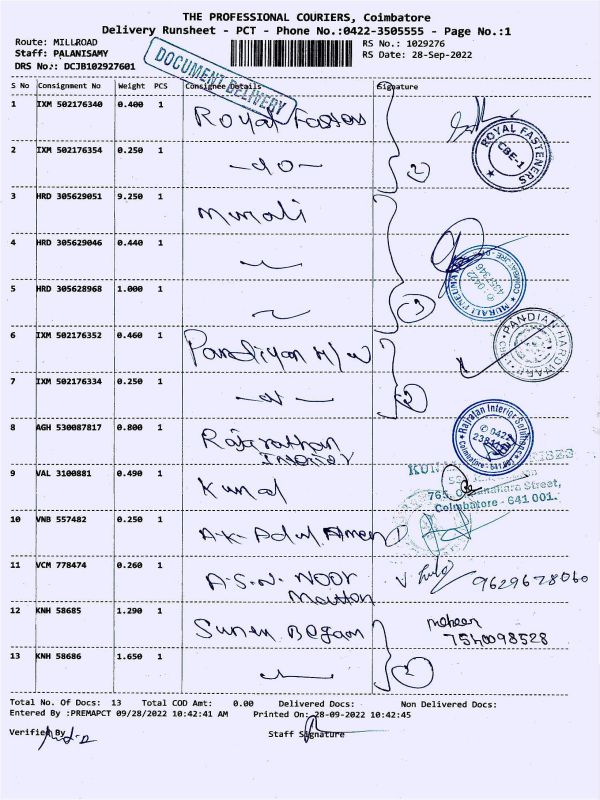 THE PROFESSIONAL COURIERS, Coimbatore
Delivery Runsheet - PCT - Phone No.:0422-3505555 - Page No.:1
Route: MILLROAD
Staff: PALANISAMY
DRS No.: DCJB102927601
RS No.: 1029276
RS Date: 28-Sep-2022
DOCUMENT DELIVERY
S No Consignment No Weight PCS Consignee Details Signature
1 IXM 502176340 0.400 1 Royal
ROYAL FASTENERS
CBE-1
2 IXM 502176354 0.250 1 -do- 2
3 HRD 305629051 9.250 1 Murali
4 HRD 305629046 0.440 1
5 HRD 305628968 1.000 1 3
6 IXM 502176352 0.460 1 Pandiyan H/W
PANDIAN HARDWARE
7 IXM 502176334 0.250 1 2
8 AGH 530087817 0.800 1 Rajrathan
Interior
Rajratan Interior Solutions
9 VAL 3100881 0.490 1 Kunal
Coimbatore - 641 001.
10 VNB 557482 0.250 1 A.K. Adul
11 VCM 778474 0.260 1 A.S.N. NOOR
Mutton
9629678060
12 KNH 58685 1.290 1 Begam
13 KNH 58686 1.650 1 2
Total No. Of Docs: 13 Total COD Amt: 0.00 Delivered Docs: Non Delivered Docs:
Entered By :PREMAPCT 09/28/2022 10:42:41 AM Printed On: 28-09-2022 10:42:45
Verified By Staff Signature